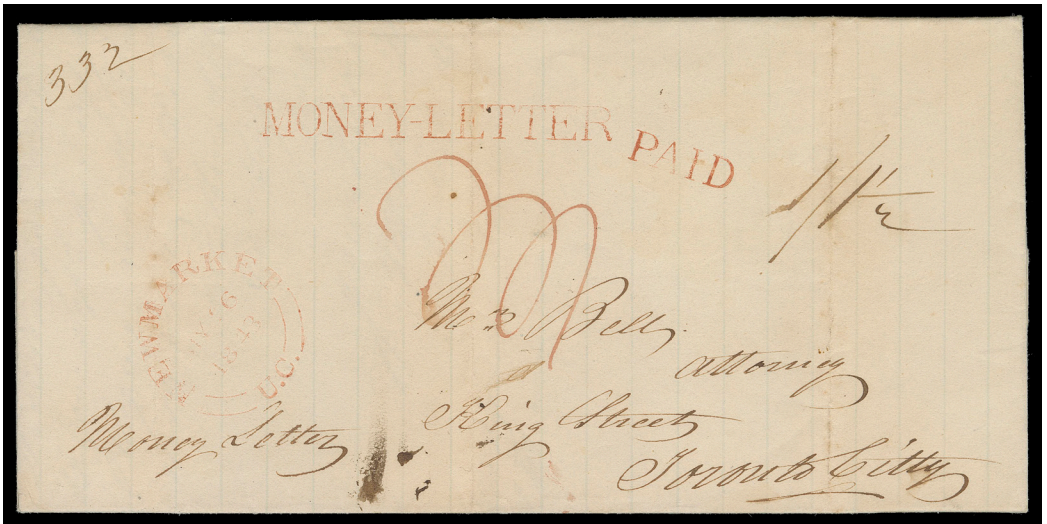 332
MONEY-LETTER
PAID
1/1½
NEWMARKET
1843
U.C.
Mr Bell
attorney
King Street
Toronto Citty
Money Letter